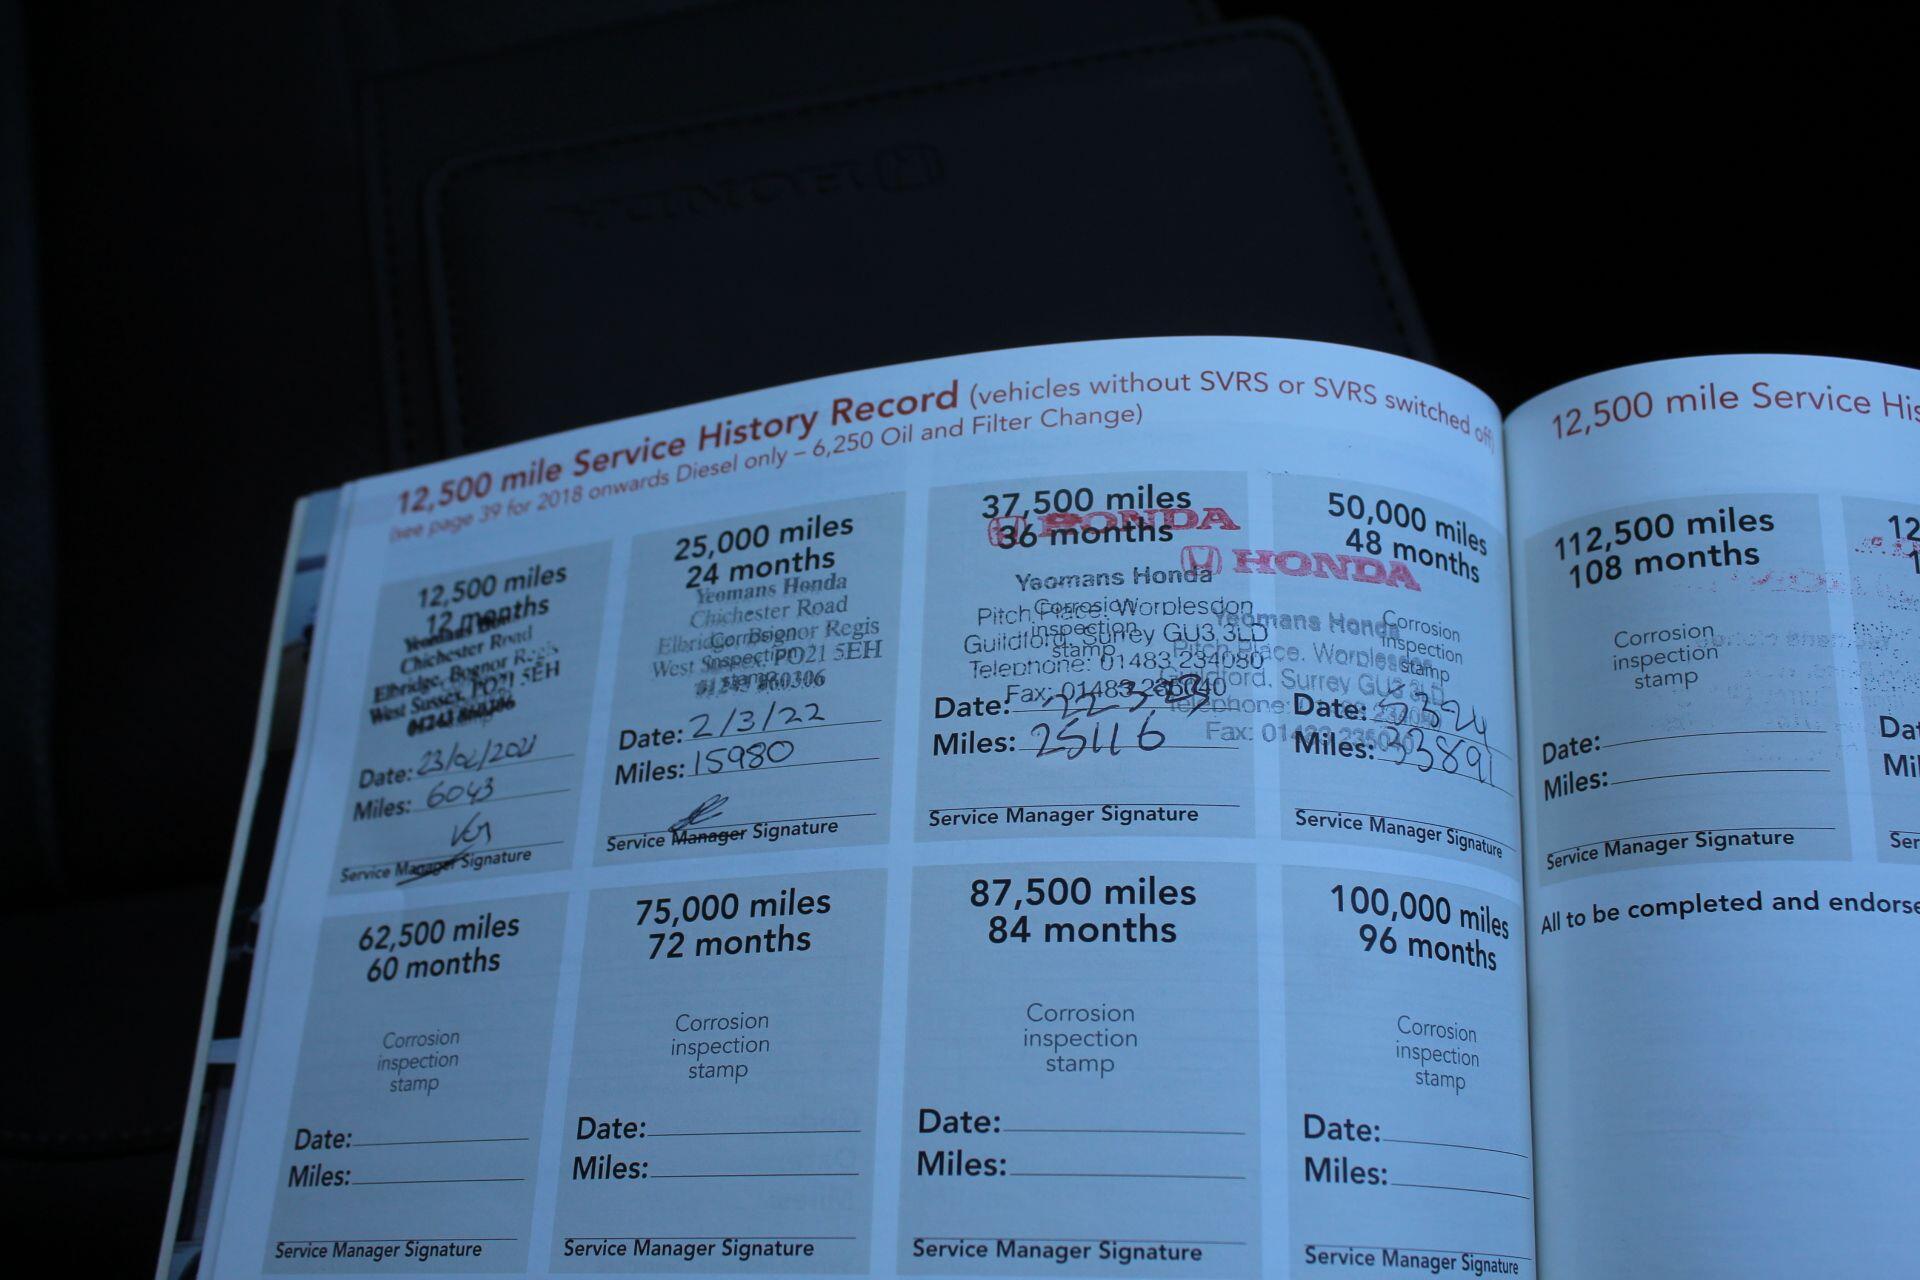 12,500 mile Service History Record (vehicles without SVRS or SVRS switched off)
(see page 39 for 2018 onwards Diesel only – 6,250 Oil and Filter Change)
12,500 miles
12 months
Chichester Road
Elbridge, Bognor Regis
West Sussex, PO21 5EH
01243 860306
Date: 23/02/2021
Miles: 6043
Service Manager Signature
25,000 miles
24 months
Yeomans Honda
Chichester Road
Elbridge, Bognor Regis
West Sussex, PO21 5EH
01243 860306
Date: 2/3/22
Miles: 15980
Service Manager Signature
37,500 miles
36 months
HONDA
Yeomans Honda
Corrosion
inspection
stamp
Pitch Place, Worplesdon
Guildford, Surrey GU3 3LD
Telephone: 01483 234080
Fax: 01483 236040
Date: 22323
Miles: 25116
Service Manager Signature
50,000 miles
48 months
HONDA
Yeomans Honda
Corrosion
inspection
stamp
Pitch Place, Worplesdon
Guildford, Surrey GU3 3LD
Telephone:
Fax: 01483 236040
Date: 5324
Miles: 33891
Service Manager Signature
62,500 miles
60 months
Corrosion
inspection
stamp
Date:
Miles:
Service Manager Signature
75,000 miles
72 months
Corrosion
inspection
stamp
Date:
Miles:
Service Manager Signature
87,500 miles
84 months
Corrosion
inspection
stamp
Date:
Miles:
Service Manager Signature
100,000 miles
96 months
Corrosion
inspection
stamp
Date:
Miles:
Service Manager Signature
12,500 mile Service His
112,500 miles
108 months
Corrosion
inspection
stamp
Date:
Miles:
Service Manager Signature
12
1
Da
Mil
Ser
All to be completed and endorse